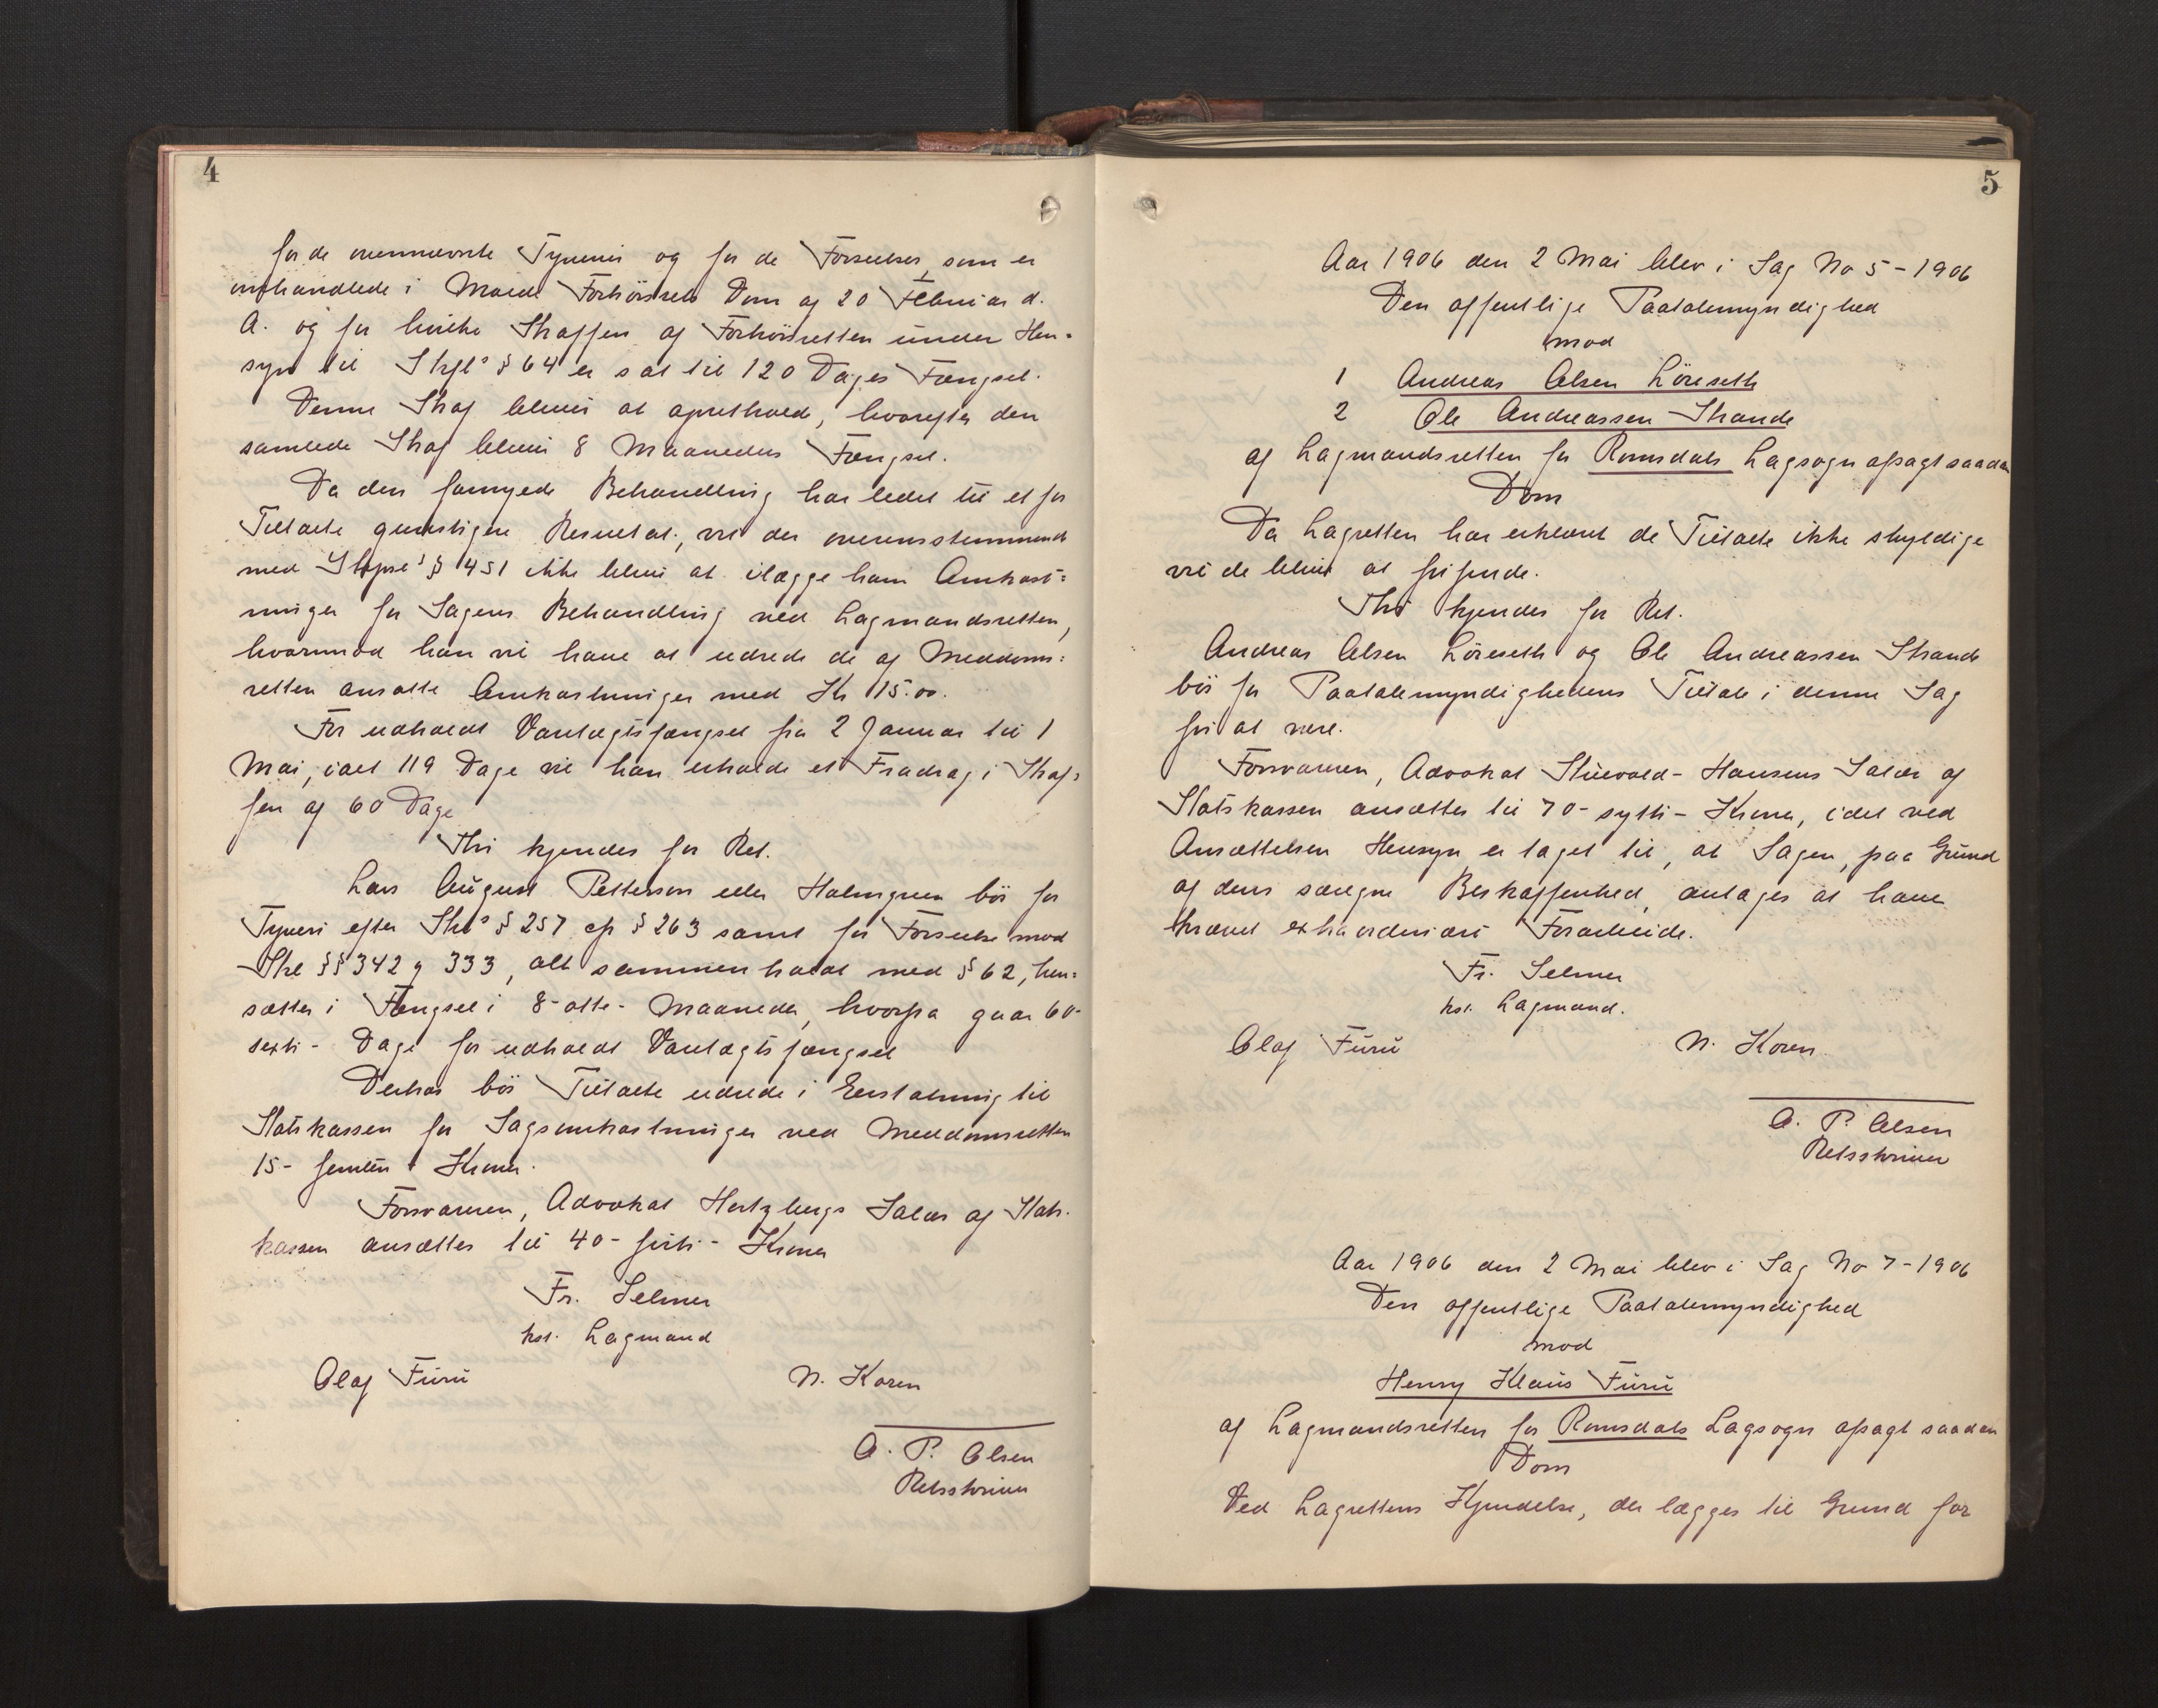 4
for de ovennævnte Tyverier og for de Forseelser, som er
omhandlede i Molde Forhörsrets Dom af 20 Februar d.
A. og for hvilke Straffen af Forhörsretten under Hen=
syn til Strfl's § 64 er sat til 120 Dages Fængsel.
Denne Straf bliver at opretholde, hvorefter den
samlede Straf bliver 8 Maaneders Fængsel.
Da den fornyede Behandling har ledet til et for
Tiltalte gunstigere Resultat, vil der overensstemmende
med Strprl's § 451 ikke blive at ilægge ham Omkost=
ninger for Sagens Behandling ved Lagmandsretten,
hvorimod han vil have at udrede de af Meddoms=
retten ansatte Omkostninger med Kr 15.00.
For udholdt Varetægtsfængsel fra 2 Januar til 1
Mai, ialt 119 Dage vil han erholde et Fradrag i Straf=
fen af 60 Dage
Thi kjendes for Ret.
Lars August Petterson eller Holmgren bör for
Tyveri efter Strl's § 257 cfr § 263 samt for Forseelse mod
Strl §§ 342 og 333, alt sammenholdt med § 62, hen=
sættes i Fængsel i 8-otte- Maaneder, hvorfra gaar 60-
sexti- Dage for udholdt Varetægtsfængsel
Derhos bör Tiltalte udrede i Erstatning til
Statskassen for Sagsomkostninger ved Meddomsretten
15- femten - Kroner.
Forsvareren, Advokat Hertzbergs Salær af Stats-
kassen ansættes til 40- firti - Kroner
Fr. Selmer
kst. Lagmand
Olaf Furu N. Koren
A. P. Olsen
Retsskriver
5
Aar 1906 den 2 Mai blev i Sag No 5-1906
Den offentlige Paatalemyndighed
mod
1 Andreas Olsen Löseth
2 Ole Andreassen Strande
af Lagmandsretten for Romsdals Lagsogn afsagt saadan
Dom
Da Lagretten har erklæret de Tiltalte ikke skyldige
vil de blive at frifinde.
Thi kjendes for Ret.
Andreas Olsen Löseth og Ole Andreassen Strande
bör for Paatalemyndighedens Tiltale i denne Sag
fri at være.
Forsvareren, Advokat Stuevold-Hansens Salær af
Statskassen ansættes til 70- sytti- Kroner, idet ved
Ansættelsen Hensyn er taget til, at Sagen, paa Grund
af dens særegne Beskaffenhed, antages at have
krævet extraordinært Forarbeide.
Fr. Selmer
kst. Lagmand.
Olaf Furu N. Koren
A. P. Olsen
Retsskriver
Aar 1906 den 2 Mai blev i Sag No 7-1906
Den offentlige Paatalemyndighed
mod
Henry Klaus Furu
af Lagmandsretten for Romsdals Lagsogn afsagt saadan
Dom
Ved Lagrettens Kjendelse, der lægges til Grund for